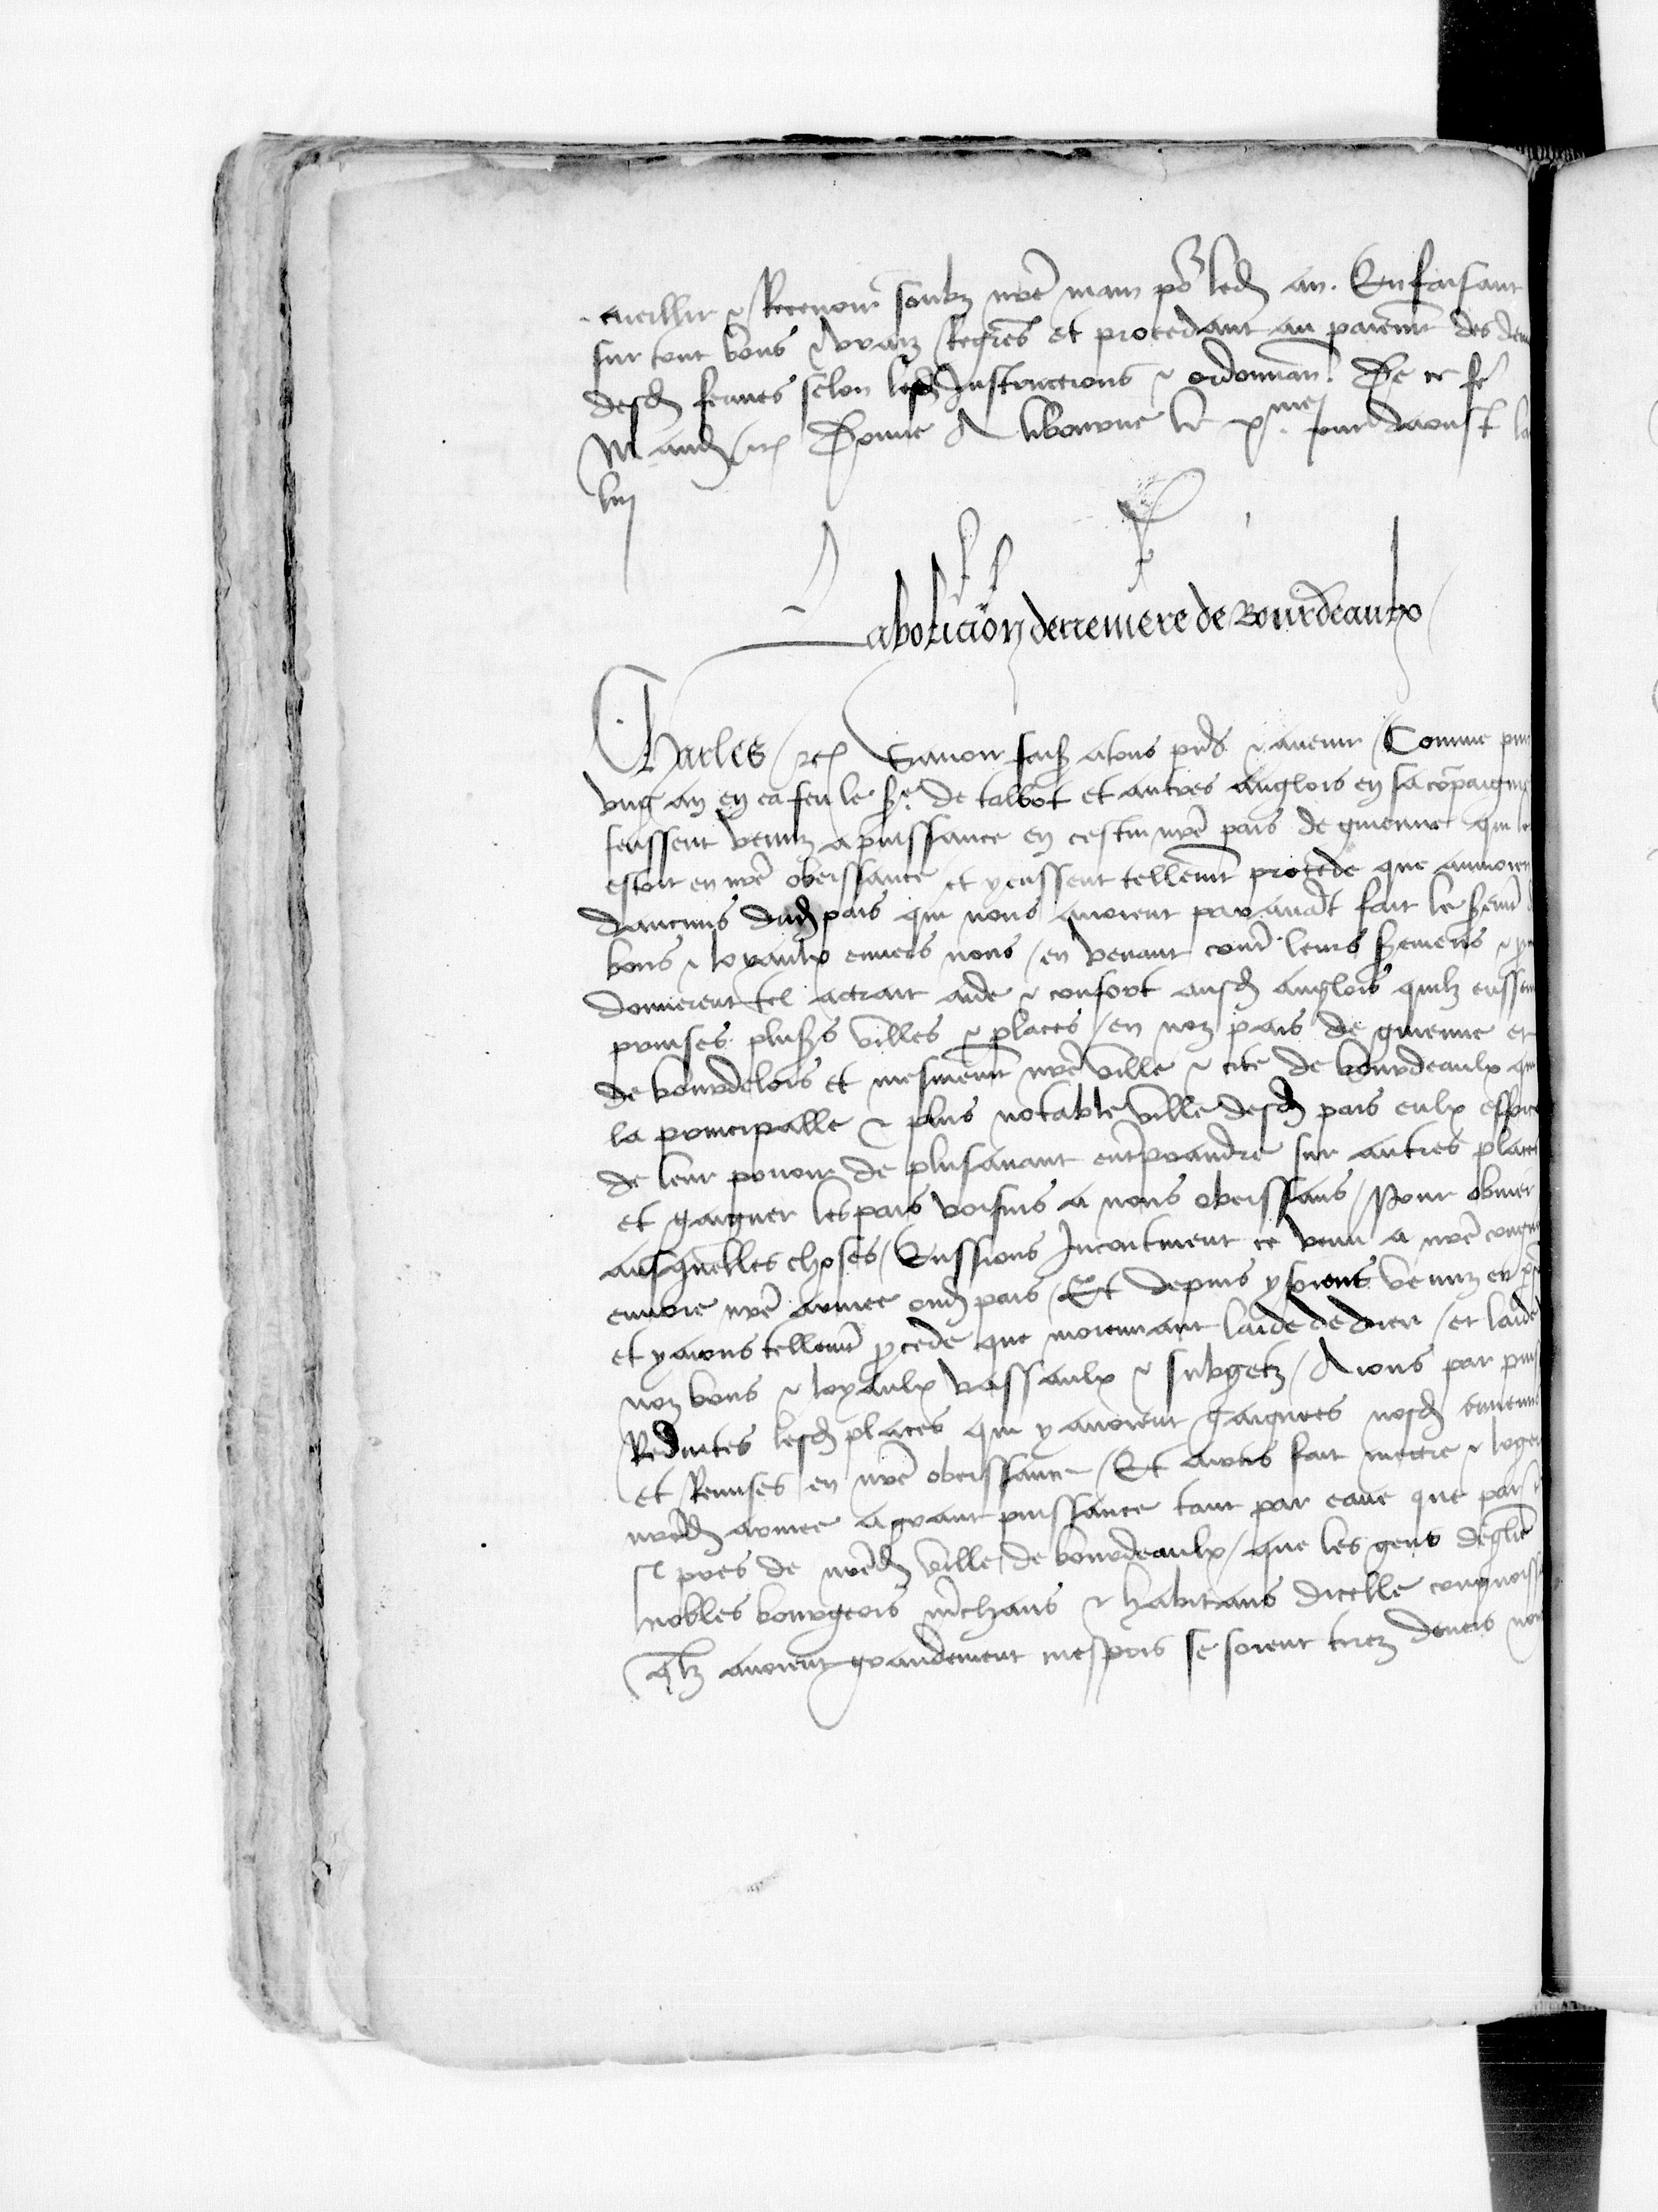 cueillir & Recevoir soubz nr̃e main po᷒ led̃ an. En faisant
sur tout bons & vraiz Regr̃es et procedant au paiemt̃ des den
desd̃ fermes selon lesd̃ Instructions & ordonnan. De ce fẽ
Mand̃ etc̃ Donne A libourne le xme jour daoust la
liij
Labolicion derreniere de Bourdeaulx
Charles etc̃ Savoir fais̃ a tous prñs & avenir / Comme puis
ung an en ca feu le sr̃ de talbot et autres anglois en sa cõpaignie
feussent venuz a puissance en cestui nr̃e pais de guienne qui lo
estoit en nr̃e obeissance et y eussent tellemt̃ procede que aumoien
daucuns dud̃ pais qui nous avoient par avãt fait le seremt̃
bons & loyaulx envers nous / en venant contr̃ leurs seremens & p
donnerent tel actrait aide & confort ausd̃ anglois quilz eussent
prinses plus̃rs villes & places / en noz pais de guienne et
de bourdelois et mesmemt̃ nr̃e ville & cite de bourdeaulx qui
la principalle & plus notable ville desd̃ pais eulx efforc
de leur povoir de plusavant entr̃prandre sur autres places
et gaigner les pais voisins a nous obeissans / Pour obvier
ausquelles choses / Eussions Incontinent ce venu a nr̃e congn
envoie nr̃e armee oud̃ pais / Et depuis y soions venuz en p
et y avons tellemt̃ p̃cede que moiennant laide de dieu / et laide
noz bons & loyaulx vassaulx & subgetz / Aions par puis
Reduites lesd̃ places que y avoient gaignees nosd̃ ennemis
et Remises en nr̃e obeissance / Et avons fait mectre & loger
nr̃ed̃ armee a grant puissance tant par eaue que par t
si pres de nr̃ed̃ ville de bourdeaulx / que les gens deglis̃e
nobles bourgeois mr̃chans & habitans dicelle congnoiss
q̃lz avoient grandement mespris se soient tirez devers nous